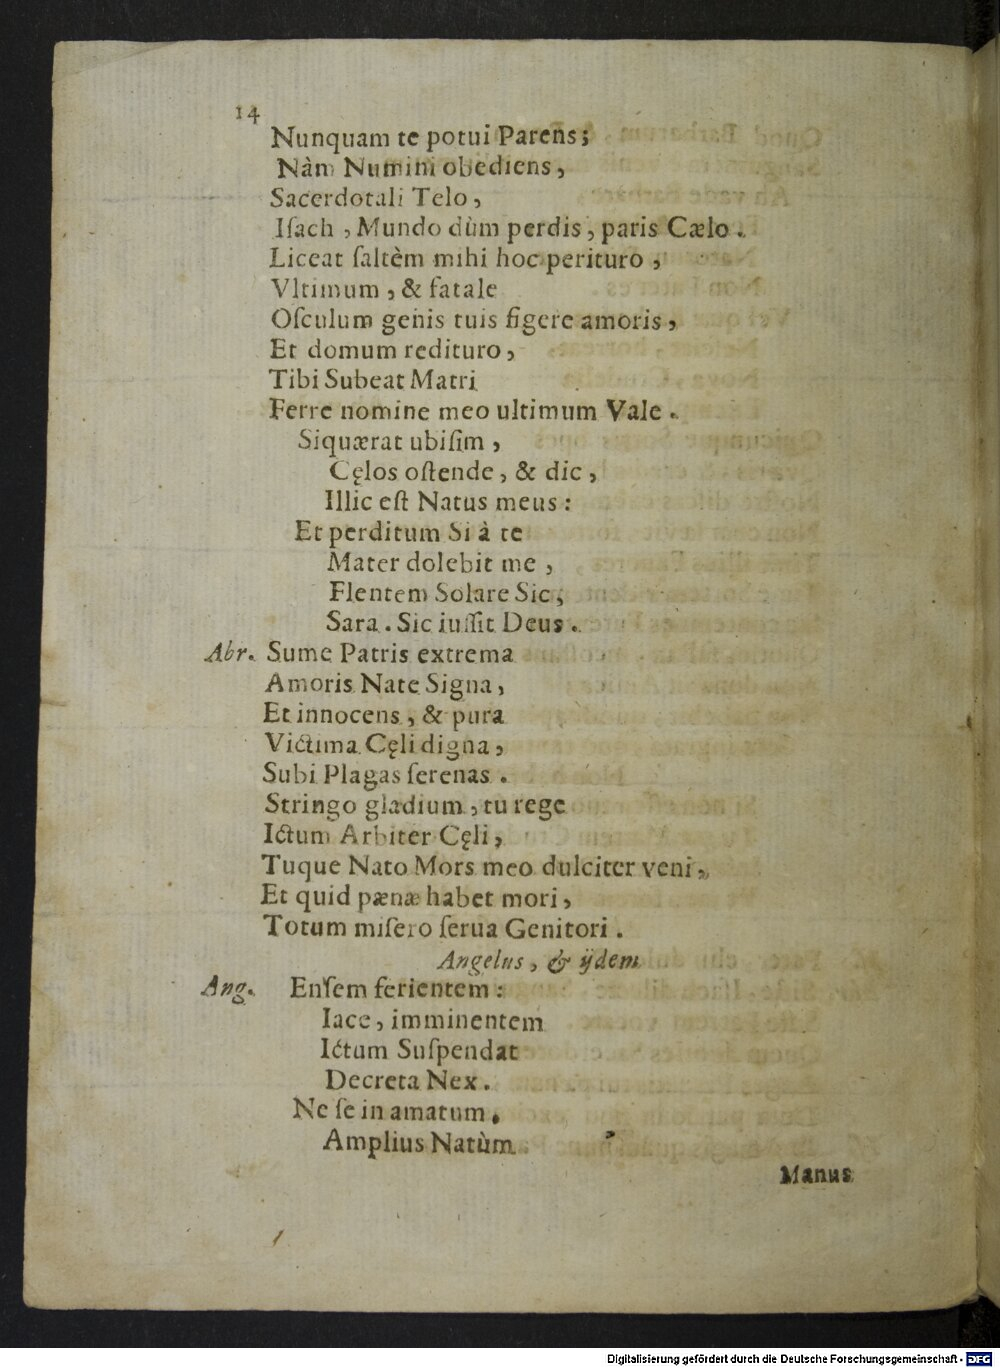 14
Nunquam te potui Parens;
Nàm Numini obediens,
Sacerdotali Telo,
Iſach, Mundo dùm perdis, paris Cælo.
Liceat ſaltèm mihi hoc perituro,
Vltimum, & fatale
Oſculum genis tuis figere amoris,
Et domum redituro,
Tibi Subeat Matri
Ferre nomine meo ultimum Vale.
Siquærat ubiſim,
Cęlos oſtende, & dic,
Illic eſt Natus meus:
Et perditum Si à te
Mater dolebit me,
Flentem Solare Sic,
Sara. Sic iuſſit Deus.
Abr. Sume Patris extrema
Amoris Nate Signa,
Et innocens, & pura
Victima Cęli digna,
Subi Plagas ſerenas.
Stringo gladium, tu rege
Ictum Arbiter Cęli,
Tuque Nato Mors meo dulciter veni,
Et quid pænæ habet mori,
Totum miſero ſerua Genitori.
Angelus, & ijdem
Ang. Enſem ferientem:
Iace, imminentem
Ictum Suſpendat
Decreta Nex.
Ne ſe in amatum.
Amplius Natùm
Manus
Digitalisierung gefördert durch die Deutsche Forschungsgemeinschaft - DFG